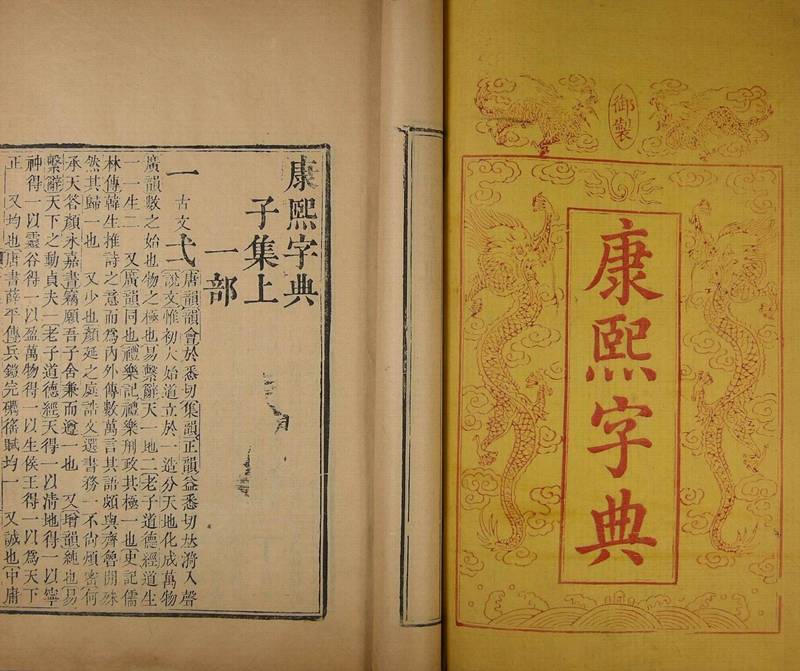 御製
康熙字典
康熙字典
子集上
一部
一 古文 弌
唐韻韻會於悉切集韻正韻益悉切𠀤漪入聲
說文惟初大始道立於一造分天地化成萬物
廣韻數之始也物之極也易繫辭天一地二老子道德經道生
一一生二 又廣韻同也禮樂記禮樂刑政其極一也史記儒
林傳韓生推詩之意而爲內外傳數萬言其語頗與齊魯閒殊
然其歸一也 又少也顏延之庭誥文選書務一不尙煩密何
承天答顏永嘉書竊願吾子舍兼而遵一也 又增韻純也易
繫辭天下之動貞夫一老子道德經天得一以淸地得一以寧
神得一以靈谷得一以盈萬物得一以生侯王得一以爲天下
正 又均也唐書薛平傳兵鎧完礪徭賦均一 又誠也中庸